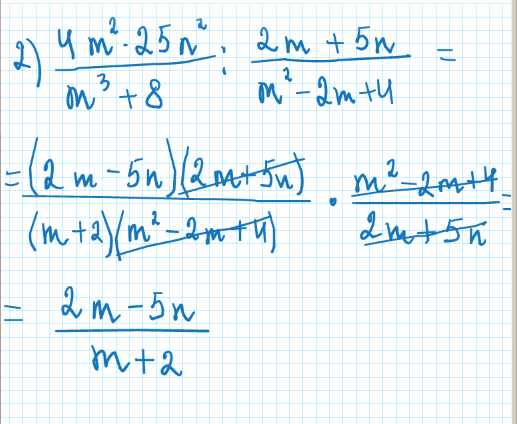 2) (4m² · 25n²)/(m³ + 8) : (2m + 5n)/(m² - 2m + 4) =
= ((2m - 5n)(2m + 5n))/((m + 2)(m² - 2m + 4)) · (m² - 2m + 4)/(2m + 5n) =
= (2m - 5n)/(m + 2)